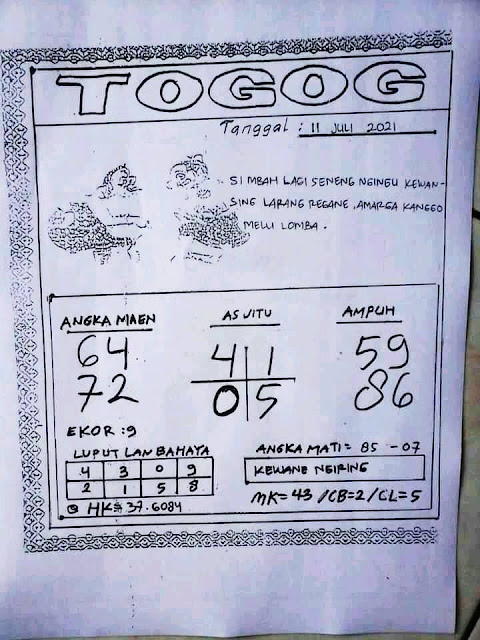 TOGOG
Tanggal : 11 JULI 2021
SI MBAH LAGI SENENG NGINGU KEWAN-
SING LARANG REGANE , AMARGA KANGGO
MELU LOMBA .
ANGKA MAEN
64
72
AS JITU
4 1
0 5
AMPUH
59
86
EKOR : 9
LUPUT LAN BAHAYA
4 3 0 9
2 1 5 8
HK= 37.6084
ANGKA MATI = 85 - 07
KEWANE NGIRING
MK= 43 /CB=2/CL=5